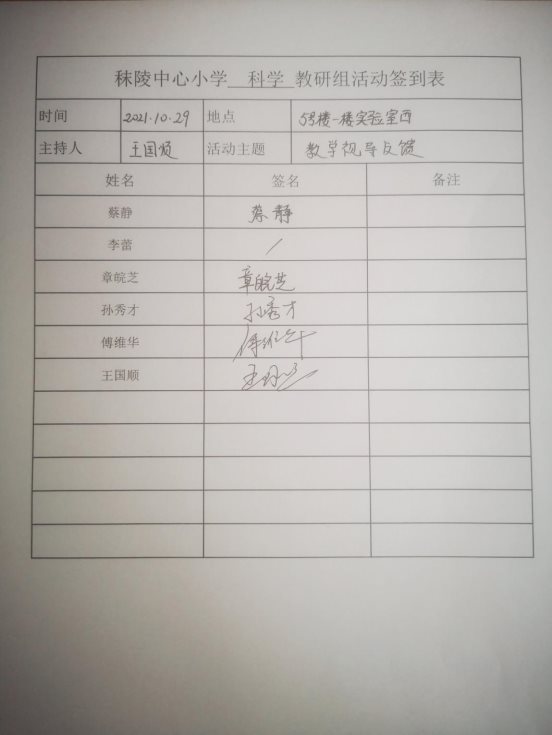 秣陵中心小学 科学 教研组活动签到表
时间 2021.10.29 地点 5号楼一楼实验室西
主持人 王国顺 活动主题 教学视导反馈
姓名 签名 备注
蔡静 蔡静
李蕾 /
章皖芝 章皖芝
孙秀才 孙秀才
傅维华 傅维华
王国顺 王国顺